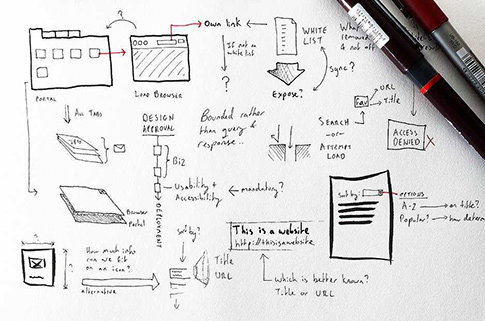 ?
Own link
WHITE
LIST
If not on
white list
?
Expose?
Sync?
What
& not
PORTAL
LOAD BROWSER
All Tabs
DESIGN
APPROVAL
Biz
Usability +
Accessibility
mandatory?
DEPLOYMENT
Bounded rather
than query &
response..
URL
Title
fav
SEARCH
-or-
ATTEMPT
LOAD
ACCESS
DENIED
Browser
Portal
Sort by:
OPTIONS
A-Z
on title?
Popular?
how determ
?
?
How much info
can we fit
on an icon?
alternative
Sort by?
Title
URL
This is a website
http://thisisawebsite
Which is better known?
Title or URL